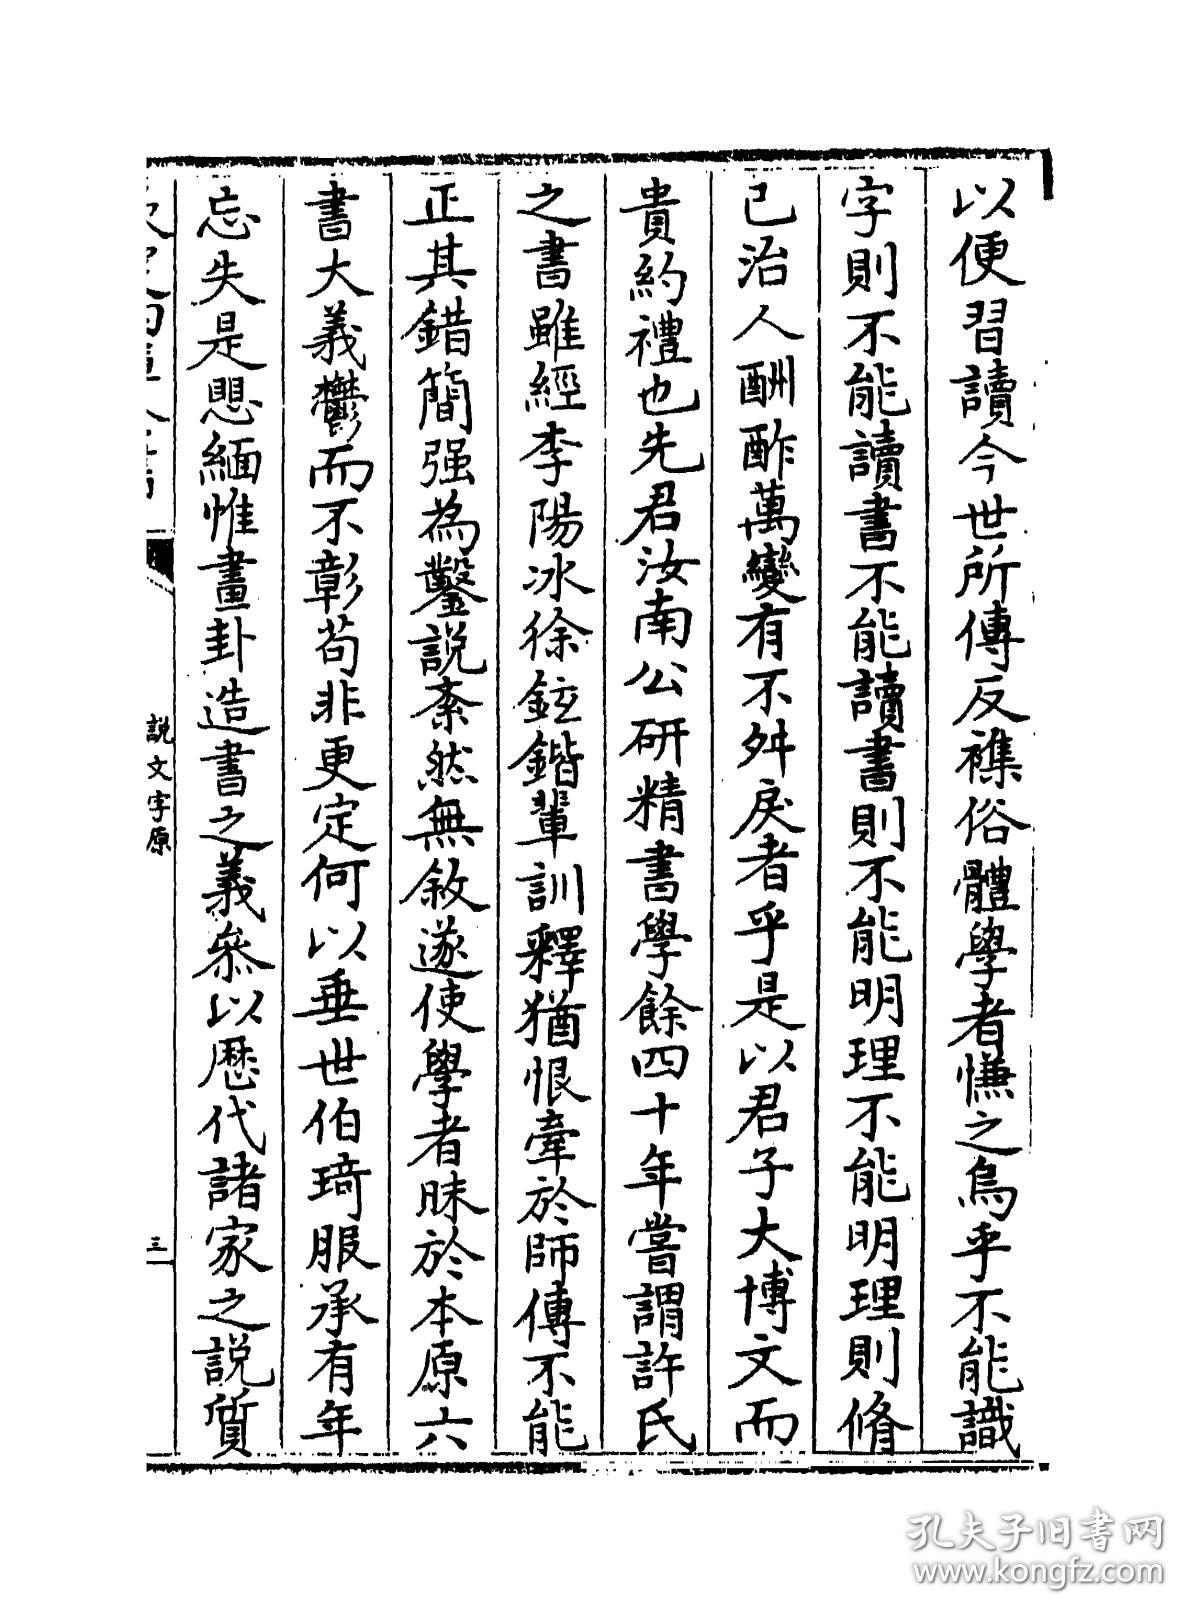 以便習讀今世所傳反襍俗體學者慊之烏乎不能識
字則不能讀書不能讀書則不能明理不能明理則脩
己治人酬酢萬變有不舛戾者乎是以君子大博文而
貴約禮也先君汝南公研精書學餘四十年嘗謂許氏
之書雖經李陽冰徐鉉鍇輩訓釋猶恨牽於師傳不能
正其錯簡强為鑿說紊然無敘遂使學者昧於本原六
書大義鬱而不彰苟非更定何以垂世伯琦服承有年
忘失是愳緬惟畫卦造書之義叅以歷代諸家之說質
說文字原
三
孔夫子旧书网
www.kongfz.com